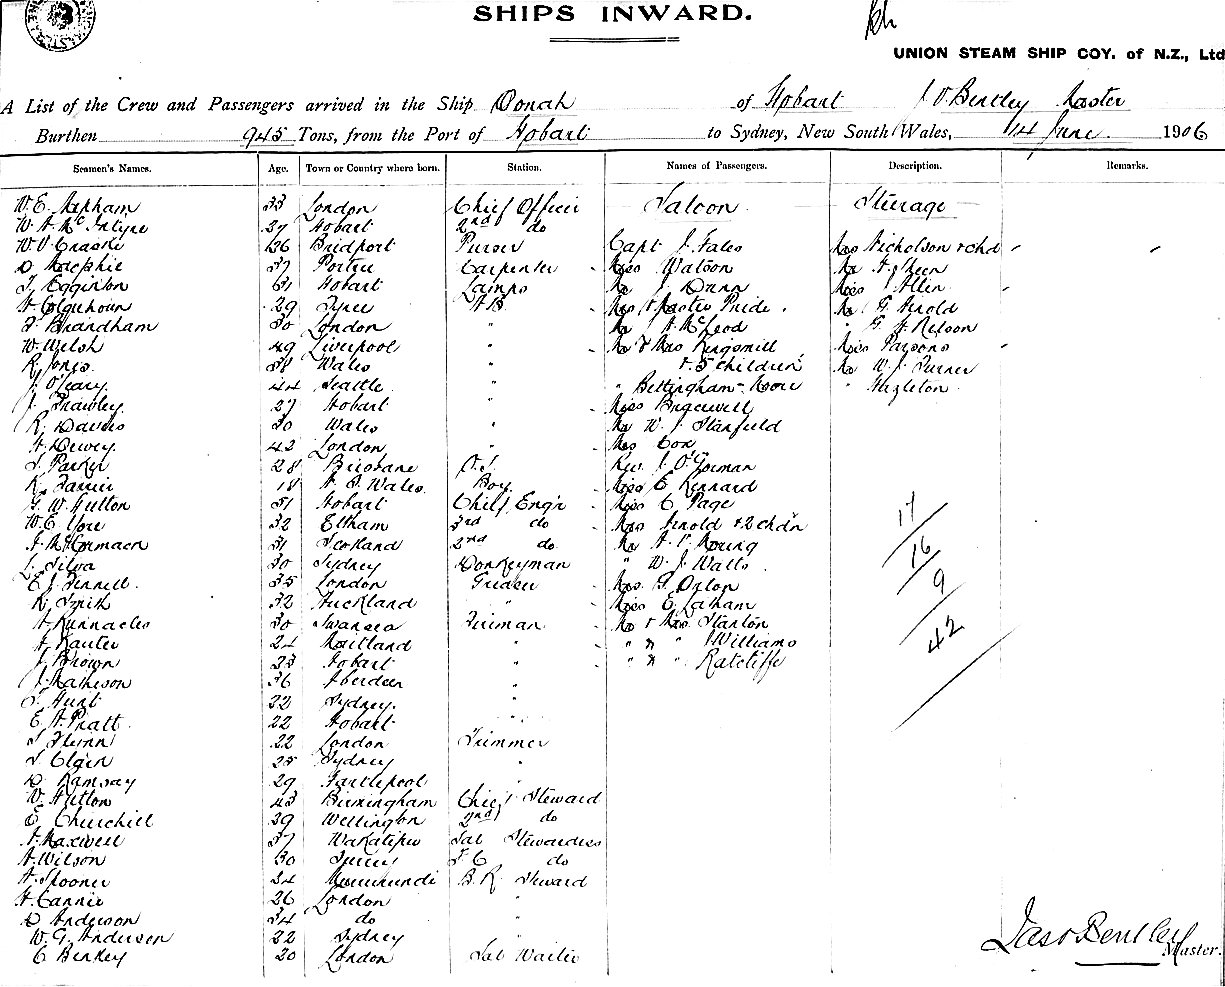 SHIPS INWARD.
UNION STEAM SHIP COY. of N.Z., Ltd
A List of the Crew and Passengers arrived in the Ship Oonah of Hobart J. O. Bentley Master
Burthen 945 Tons, from the Port of Hobart to Sydney, New South Wales, 14 June 1906
Seamen's Names. Age. Town or Country where born. Station. Names of Passengers. Description. Remarks.
W. E. Mepham 33 London Chief Officer Saloon Steerage
W. A. McIntyre 37 Hobart 2nd do
W. O. 36 Bridport Purser Capt J. Fales Mrs Nicholson & chd
D Macphie 37 Carpenter Miss Watson Mr A. Sheen
T. Egginton 61 Hobart Lamps Mr J. Dunn Miss Allen
A Colquhoun 29 Tyree A.B. Mrs & Master Pride Mr G. Arnold
F. Brandham 30 London " Mr A McLeod " G. A. Nelson
W. Welsh 49 Liverpool " Mr & Mrs Kingsmill Miss Parsons
R. Jones 38 Wales " & 5 children Mr W. J. Turner
J. O'Leary 44 Seattle " " Bettingham-Moore " Hazleton
J. Frawley 27 Hobart " Miss Bracewell
R. Davies 30 Wales " Mr W. J. Stanfield
A. Dewey 42 London " Mrs Cox
S. Parker 28 Brisbane O.S. Rev. J. O'Gorman
R. 18 N. S. Wales Boy Miss E Kennard
G. W. Hutton 51 Hobart Chief Engr Miss C Page
W. E. Yore 32 Eltham 3rd do Mrs Arnold & 2 chdn 17
A McCormack 31 Scotland 2nd do Mr A. V. Young 16
L. Silva 30 Sydney Donkeyman " W. J. Watts
E. J. Fennell 35 London Greaser Mrs G. Orton 9
R. Smith 32 Auckland " Miss E Latham
A. Runnacles 30 Swansea Fireman Mr & Mrs Stanton 42
A. 24 Maitland " " " " Williams
J. Brown 23 Hobart " " " " Ratcliffe
J. Matheson 36 Aberdeen "
S. Hunt 32 Sydney "
E. A. Pratt 22 Hobart "
22 London Trimmer
S. Elgin 25 Sydney "
D. Ramsay 29 Hartlepool "
W. Hutton 43 Birmingham Chief Steward
E. Churchill 39 Wellington 2nd do
A. Maxwell 37 Wakatipu Sal Stewardess
A. Wilson 30 F C do
A. Spooner 34 Murrurundi B. R. Steward
A. Cannie 26 London "
D Anderson 34 do "
W. G. Anderson 22 Sydney "
C Benkey 20 London Sal Waiter
Jas O Bentley
Master.